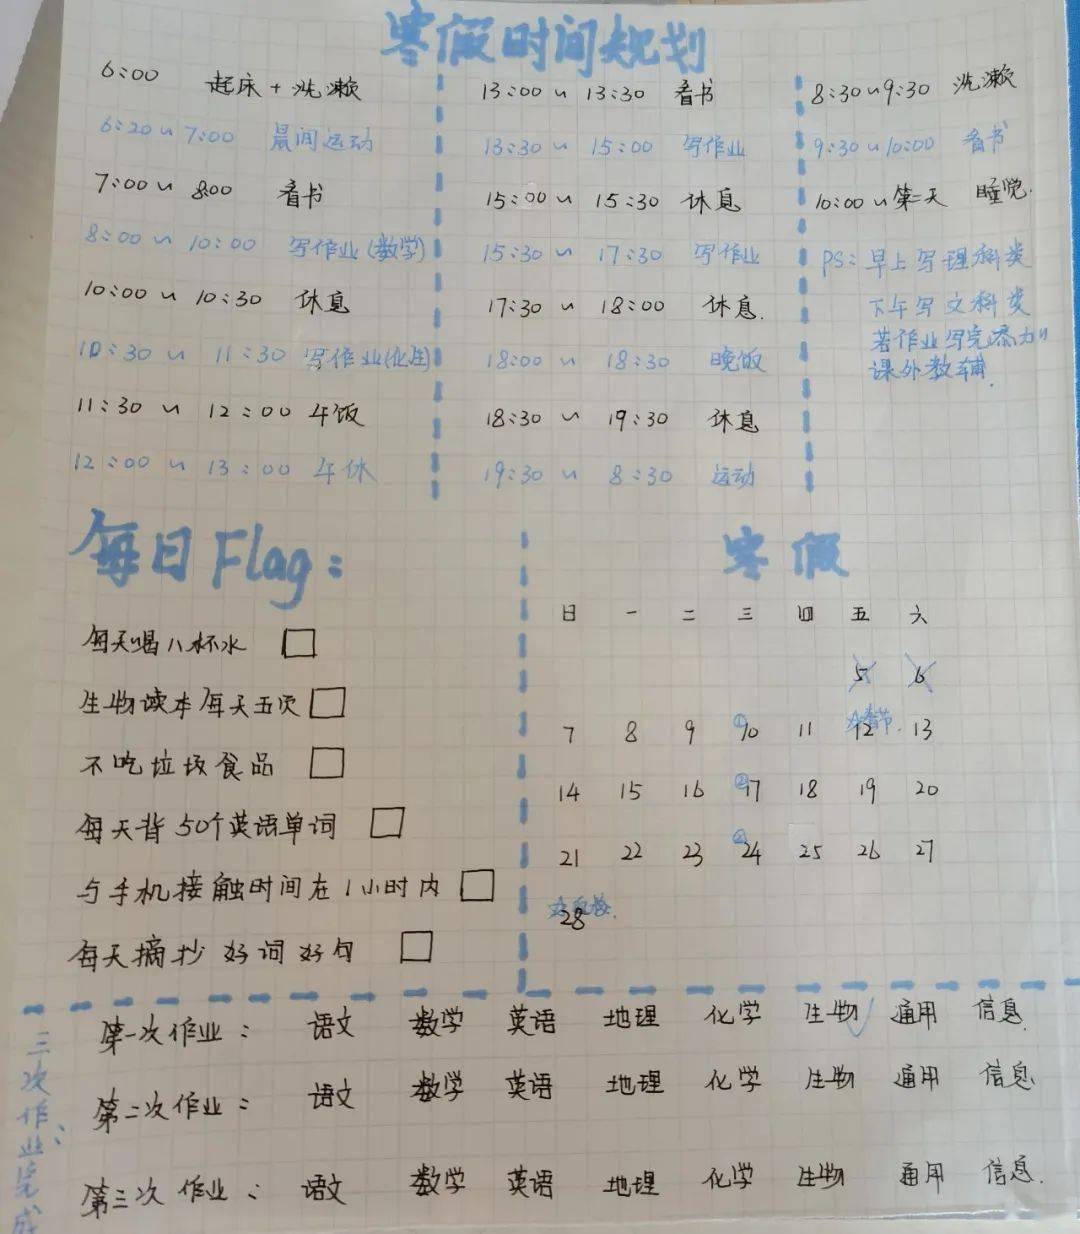 寒假时间规划
6:00 起床+洗漱
6:20~7:00 晨间运动
7:00~8:00 看书
8:00~10:00 写作业(数学)
10:00~10:30 休息
10:30~11:30 写作业(化生)
11:30~12:00 午饭
12:00~13:00 午休
13:00~13:30 看书
13:30~15:00 写作业
15:00~15:30 休息
15:30~17:30 写作业
17:30~18:00 休息.
18:00~18:30 晚饭
18:30~19:30 休息
19:30~8:30 运动
8:30~9:30 洗漱
9:30~10:00 看书
10:00~第二天 睡觉.
PS:早上写理科类
下午写文科类
若作业写完添加
课外教辅.
每日Flag:
每天喝八杯水
生物读本每天五页
不吃垃圾食品
每天背50个英语单词
与手机接触时间在1小时内
每天摘抄好词好句
寒假
日 一 二 三 四 五 六
5 6
7 8 9 ①10 11 12 春节. 13
14 15 16 17 18 19 20
21 22 23 24 25 26 27
28
三次作业完成
第一次作业: 语文 数学 英语 地理 化学 生物 通用 信息.
第二次作业: 语文 数学 英语 地理 化学 生物 通用 信息
第三次作业: 语文 数学 英语 地理 化学 生物 通用 信息.